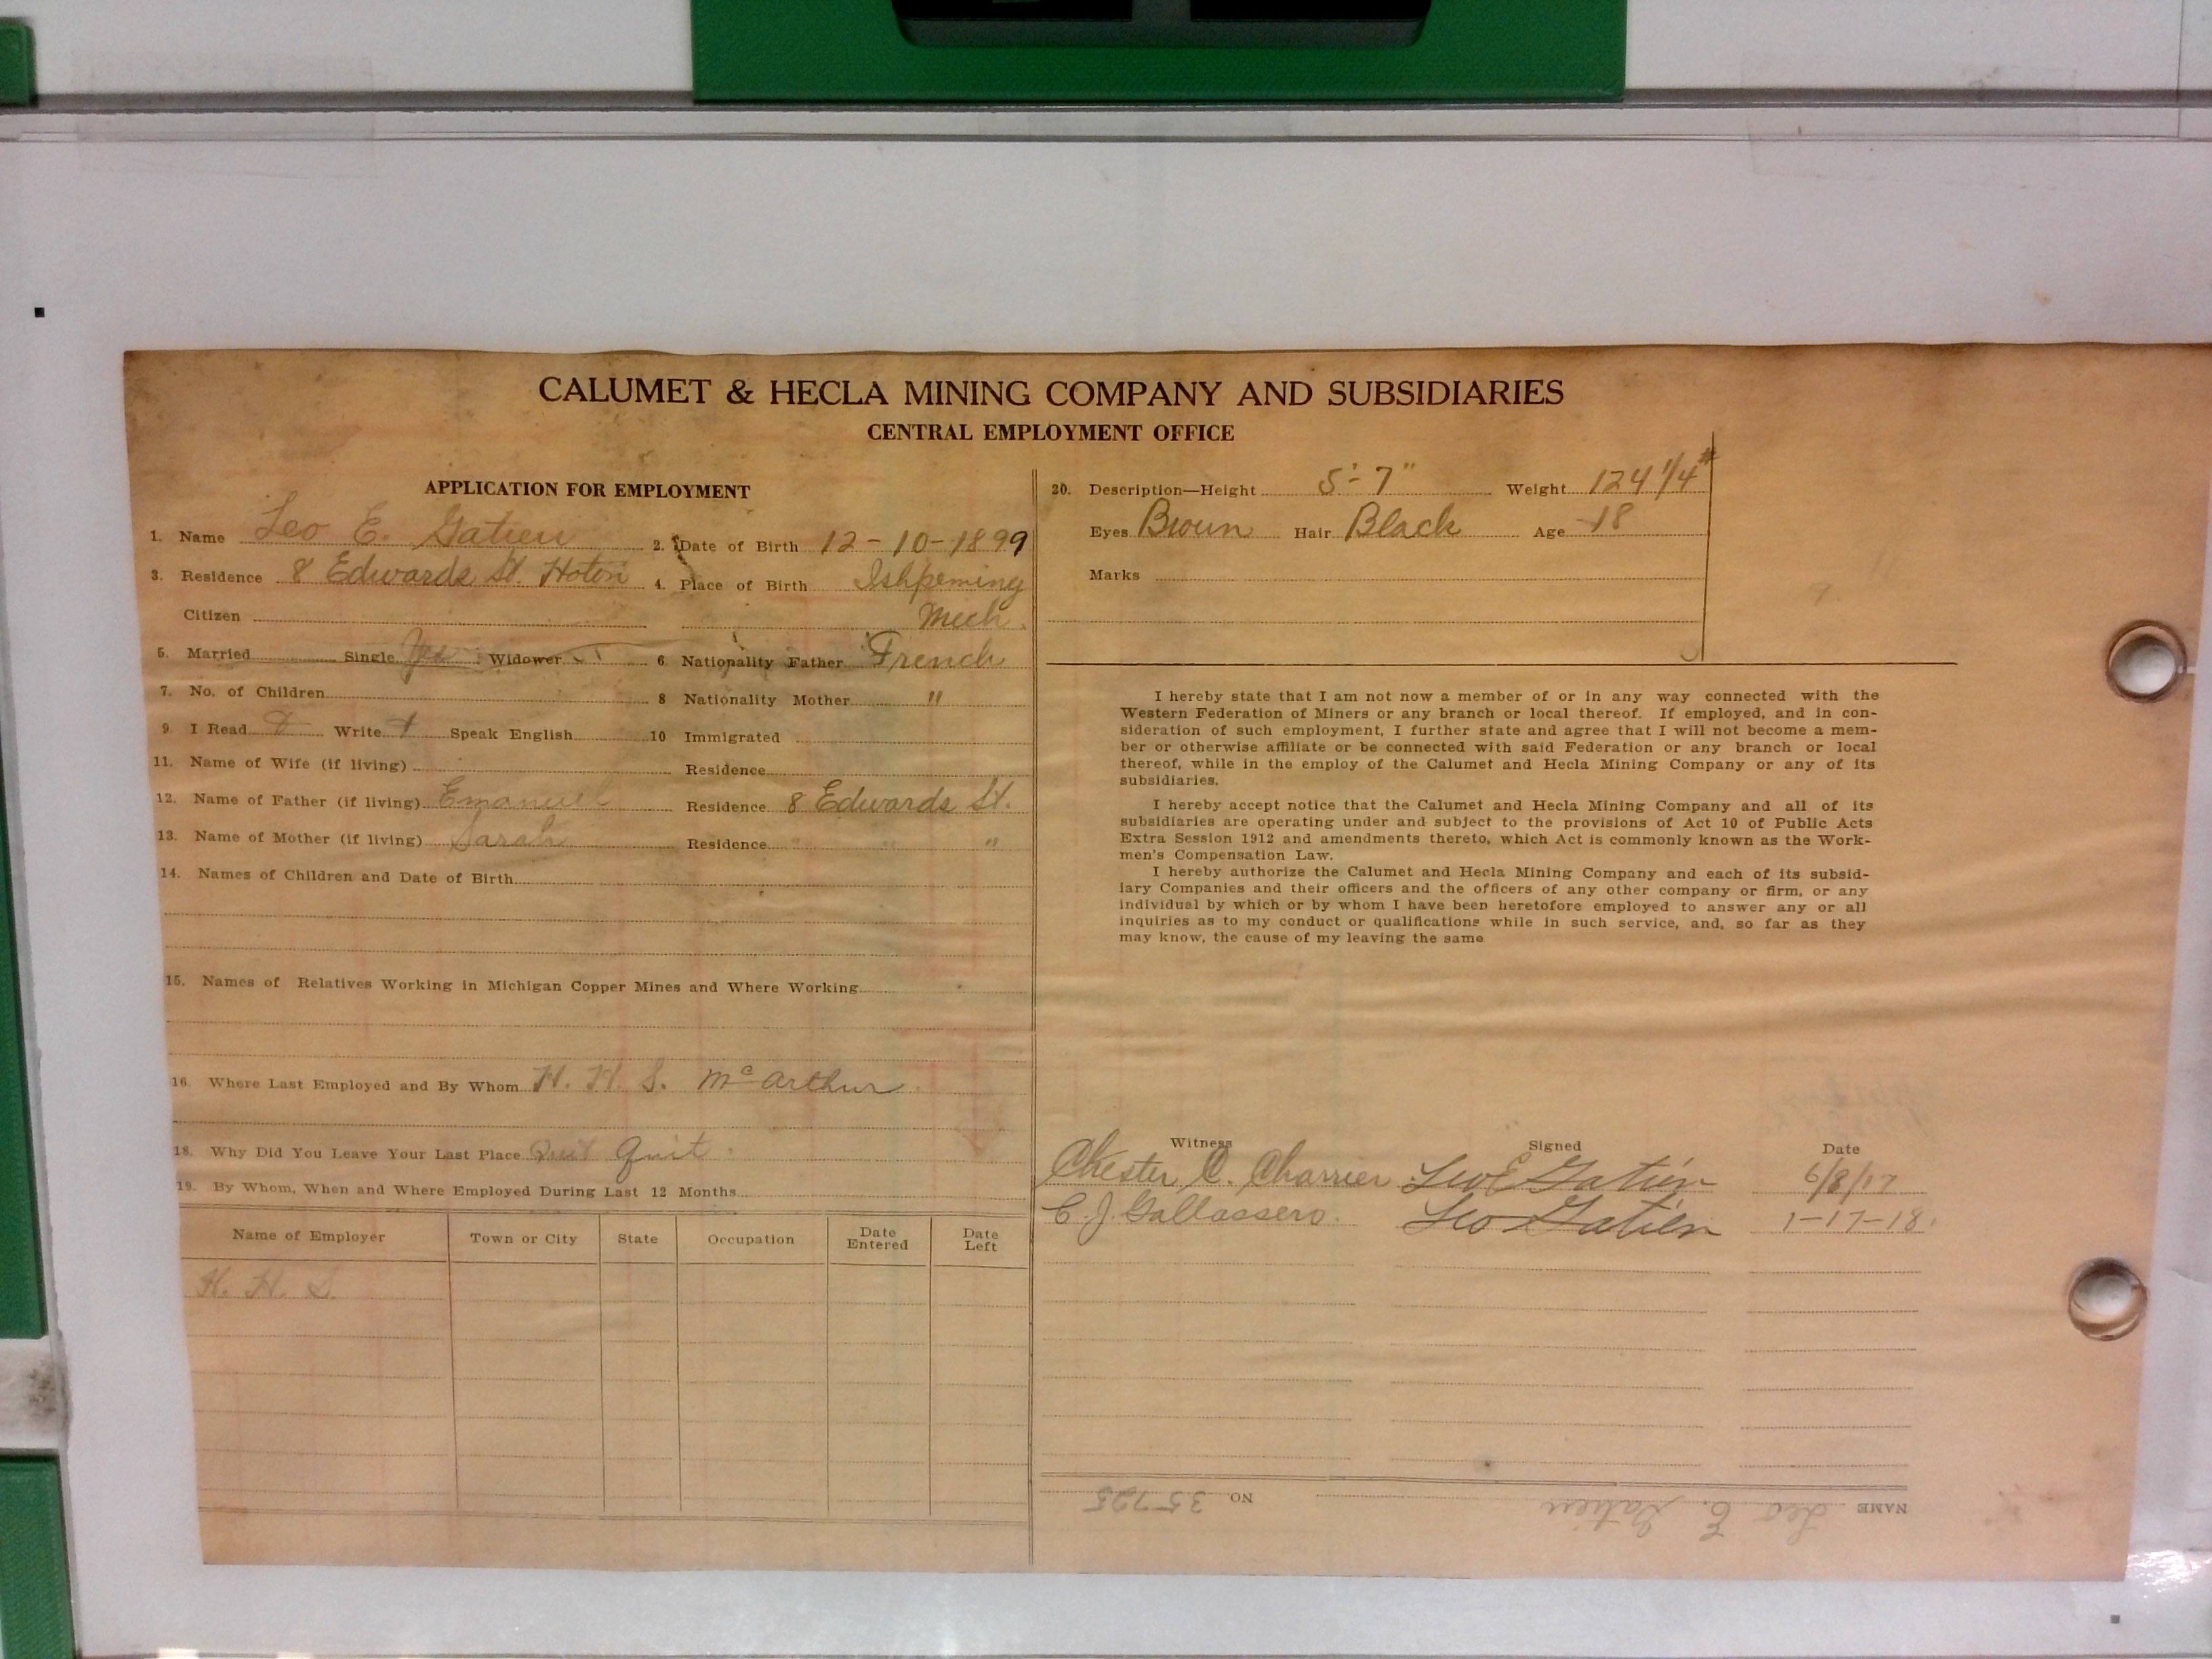 CALUMET & HECLA MINING COMPANY AND SUBSIDIARIES
CENTRAL EMPLOYMENT OFFICE
APPLICATION FOR EMPLOYMENT
1. Name Leo E. Gatien 2. Date of Birth 12-10-1899
3. Residence 8 Edwards St. Hoton 4. Place of Birth Ishpeming
Citizen Mich.
5. Married Single Yes Widower 6. Nationality Father French
7. No. of Children 8 Nationality Mother "
9. I Read + Write + Speak English 10 Immigrated
11. Name of Wife (if living) Residence
12. Name of Father (if living) Emanuel Residence 8 Edwards St.
13. Name of Mother (if living) Sarah Residence " " "
14. Names of Children and Date of Birth
15. Names of Relatives Working in Michigan Copper Mines and Where Working
16. Where Last Employed and By Whom H. H. S. McArthur
18. Why Did You Leave Your Last Place Quit Quit
19. By Whom, When and Where Employed During Last 12 Months
Name of Employer Town or City State Occupation Date Entered Date Left
H. H. S.
20. Description—Height 5'-7" Weight 124 1/4 #
Eyes Brown Hair Black Age 18
Marks
I hereby state that I am not now a member of or in any way connected with the
Western Federation of Miners or any branch or local thereof. If employed, and in con-
sideration of such employment, I further state and agree that I will not become a mem-
ber or otherwise affiliate or be connected with said Federation or any branch or local
thereof, while in the employ of the Calumet and Hecla Mining Company or any of its
subsidiaries.
I hereby accept notice that the Calumet and Hecla Mining Company and all of its
subsidiaries are operating under and subject to the provisions of Act 10 of Public Acts
Extra Session 1912 and amendments thereto, which Act is commonly known as the Work-
men's Compensation Law.
I hereby authorize the Calumet and Hecla Mining Company and each of its subsid-
iary Companies and their officers and the officers of any other company or firm, or any
individual by which or by whom I have been heretofore employed to answer any or all
inquiries as to my conduct or qualifications while in such service, and, so far as they
may know, the cause of my leaving the same
Witness Signed Date
Chester C. Charrier Leo E Gatien 6/8/17
C. J. Gallassero. Leo Gatien 1-17-18.
NAME Leo E. Gatien NO. 35725